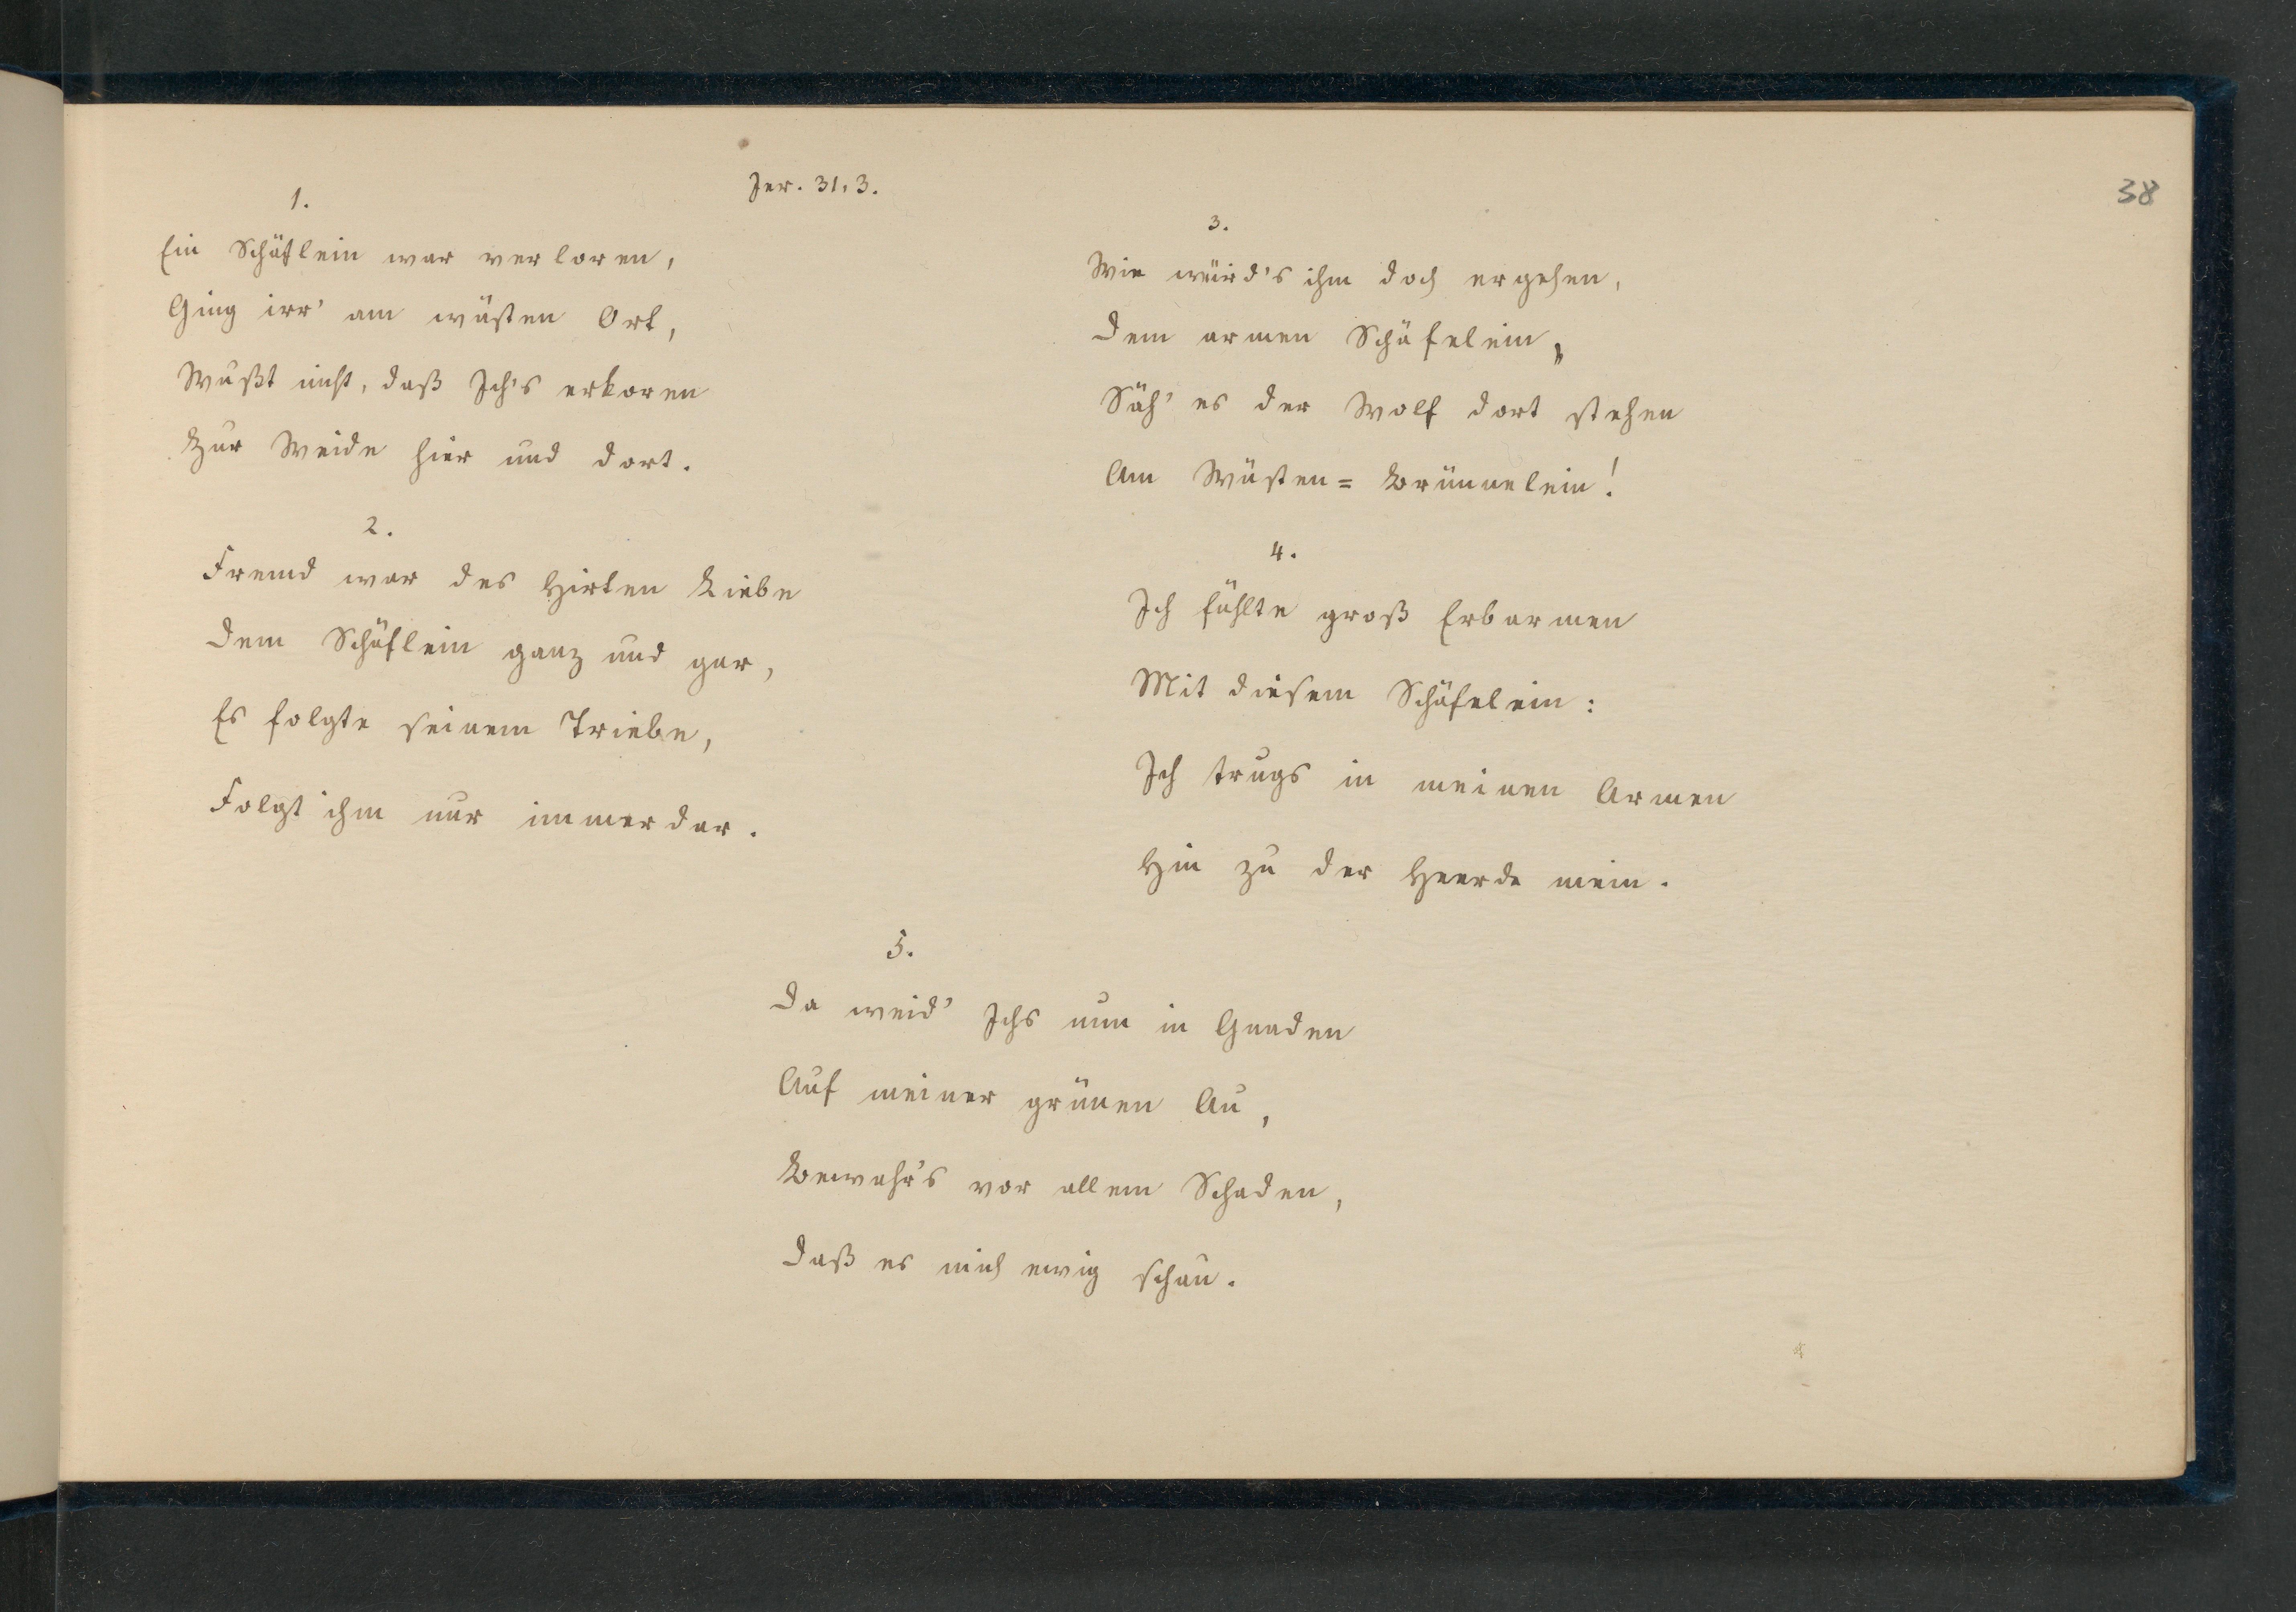 38
Jer. 31,3.
1.
Ein Schäflein war verloren,
Ging irr' am wüsten Ort,
Wußt nicht, daß Ich's erkoren
Zur Weide hier und dort.
2.
Fremd war des Hirten Liebe
Dem Schäflein ganz und gar,
Es folgte seinem Triebe,
Folgt' ihm nur immerdar.
3.
Wie würd's ihm doch ergehen,
Dem armen Schäfelein,
Säh' es der Wolf dort stehen
Am Wüsten=Brünnelein!
4.
Ich fühlte groß Erbarmen
Mit diesem Schäfelein:
Ich trugs in meinen Armen
Hin zu der Heerde mein.
5.
Da weid' Ichs nun in Gnaden
Auf meiner grünen Au,
Bewahr's vor allem Schaden,
Daß es mich ewig schau.